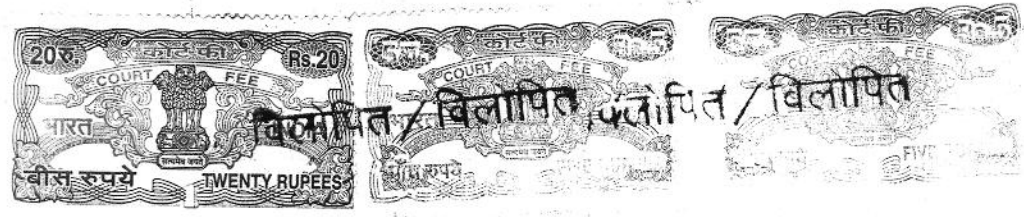 20रु. कोर्ट फी Rs.20
COURT FEE
भारत
सत्यमेव जयते
बीस रुपये TWENTY RUPEES
5रु. कोर्ट फी Rs.5
COURT FEE
भारत
पाँच रुपये
कोर्ट फी Rs.5
FEE
FIVE
विलोपित / विलोपित विलोपित / विलोपित